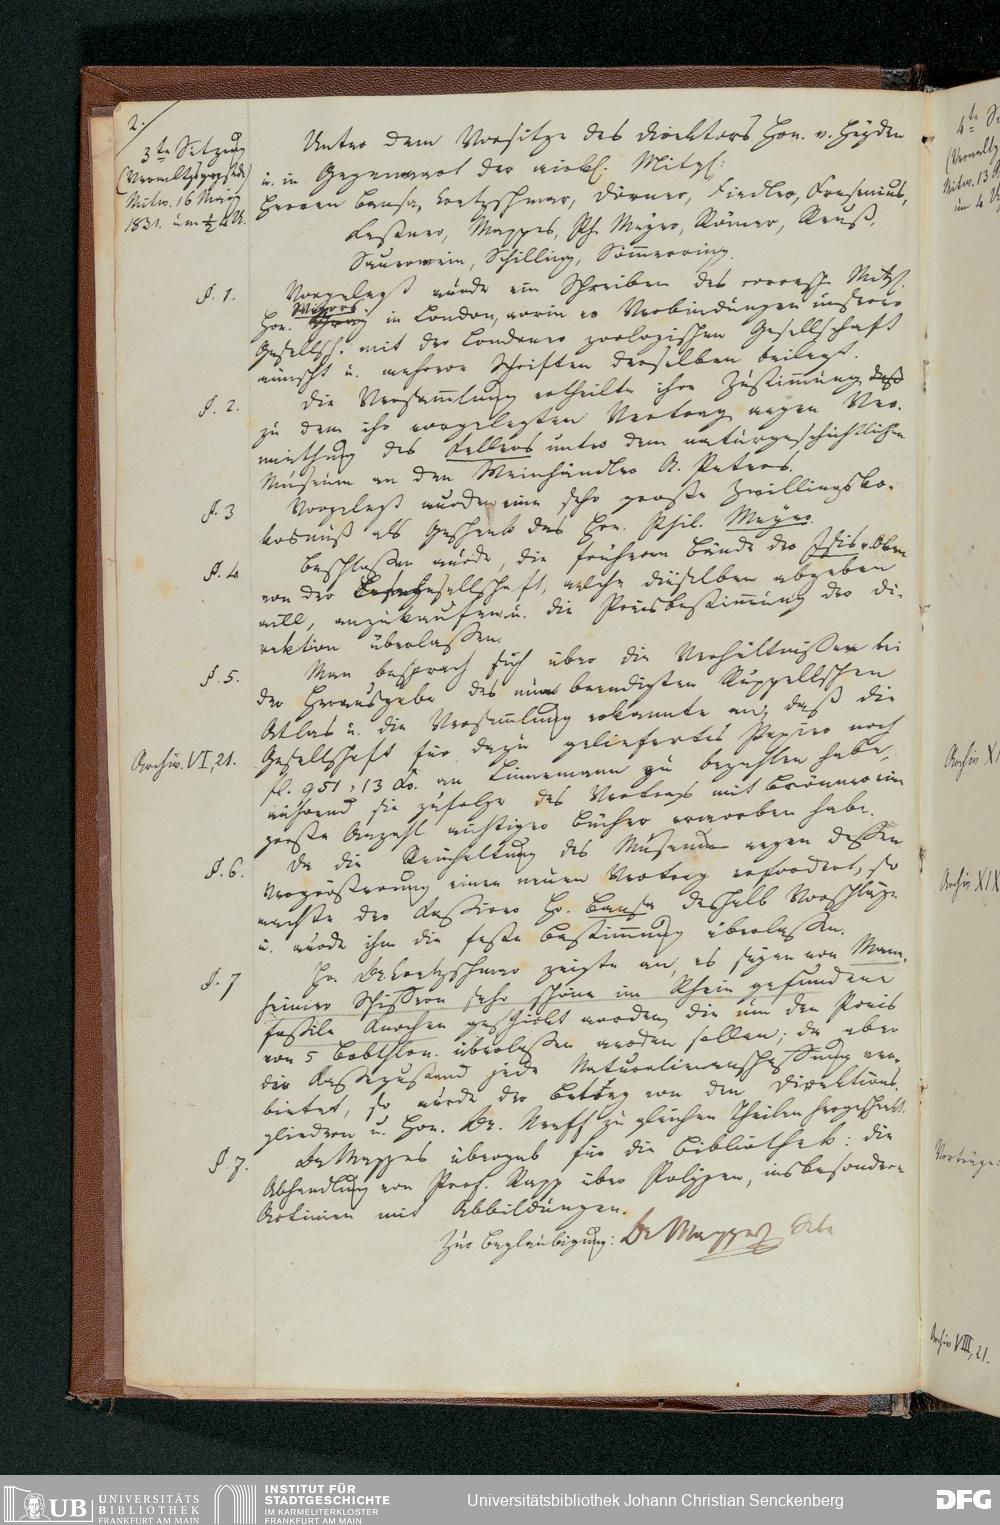 2.
3te Sitzung
(Verwaltgsgegstde)
Mittw. 16 März
1831. um ½ 4 U.
Unter dem Vorsitze des Direktors Hrn. v. Heyden
u. in Gegenwart der wirkl. Mitgl:
Herren Bansa, Cretzschmar, Dörner, Fiedler, Fresenius,
Kestner, Mappes, Ph. Meyer, Römer, Reuß,
Sauerwein, Schilling, Sömmerring.
§. 1.
Vorgelegt wurde ein Schreiben des corresp. Mitgl.
Hrn. Vigors in London, worin er Verbindungen unserer
Gesellsch. mit der Londoner zoologischen Gesellschaft
wünscht u. mehrere Schriften derselben beilegt.
§. 2.
Die Versammlung ertheilte ihre Zustimmung
zu dem ihr vorgelegten Vertrag wegen Ver-
miethung des Kellers unter dem naturgeschichtlichen
Museum an den Weinhändler A. Peters.
§. 3
Vorgelegt wurde eine sehr große Zwillingsko-
kosnuß als Geschenk des Hrn. Phil. Meyer.
§. 4
Beschlossen wurde, die früheren Bände der Isis v. Oken
von der Lesegesellschaft, welche dieselben abgeben
will, anzukaufen u. die Preisbestimmung der Di-
rektion überlassen.
§. 5.
Man besprach sich über die Verhältnisse bei
der Herausgabe des nun beendigten Rüppellschen
Atlas u. die Versammlung erkannte an, daß die
Archiv. VI, 21.
Gesellschaft für dazu geliefertes Papier noch
fl. 951, 13 Xr. an Linnemann zu bezahlen habe,
während sie zufolge des Vertrags mit Brönner eine
große Anzahl wichtiger Bücher erworben habe.
§. 6.
Da die Reinhaltung des Museums wegen dessen
Vergrößerung einen neuen Vertrag erfordert, so
machte der Kassirer Hr. Bansa deshalb Vorschläge
u. wurde ihm die feste Bestimmung überlassen.
§. 7
Hr. Dr. Cretzschmar zeigte an, es seyen von Mann-
heimer Schiffern sehr schöne im Rhein gefundene
fossile Knochen geschickt worden, die um den Preis
von 5 überlassen werden sollen; da aber
der Kassezustand jede Naturalienanschaffung ver-
bietet, so wurde der Betrag von den Direktions-
gliedern u. Hrn. Dr. Neeff zu gleichen Theilen hergeschoßt.
§. 7.
Dr Mappes übergab für die Bibliothek: die
Abhandlung von Prof. Rapp über Polypen, insbesondere
Actinien mit Abbildungen.
Zur Beglaubigung: Dr Mappes Sekr
4te S
Mittw. 13
um 4 U
Archiv XI
Archiv XIX
Vorträge:
Archiv VIII, 21.
UB UNIVERSITÄTS
BIBLIOTHEK
FRANKFURT AM MAIN
INSTITUT FÜR
STADTGESCHICHTE
IM KARMELITERKLOSTER
FRANKFURT AM MAIN
Universitätsbibliothek Johann Christian Senckenberg
DFG